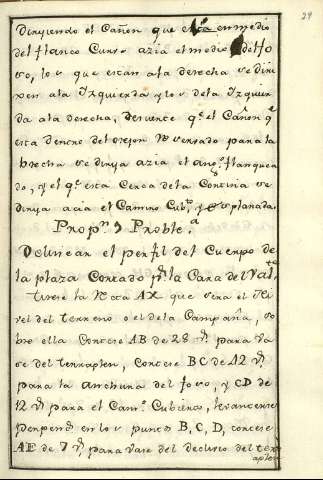 29
Dirijiendo el Cañon que está en medio
del flanco Curvo azia el medio del fo
so, los que estan a la derecha se diri
xen a la Yzquierda y los de la Yzquier
da a la derecha, de suerte q.e el Cañon q.e
esta dentro del orejon reservado para la
brecha se dirija azia el ang.o flanquea
do, y el q.e esta Cerca de la Cortina se
dirija acia el Camino Cub.to y explanada.
Prop.n 9 Proble.a
Delinear el perfil del Cuerpo de
la plaza Cortado p.r la Cara del Val.te
Tirese la Recta AX que sera el Ni
vel del terreno o el de la Campaña, so
bre ella Cortese AB de 28 v.s para Va
se del terraplen, Cortese BC de 12 v.s
para la anchura del foso, y CD de
12 v.s para el Cam.o Cubierto, levantense
perpend.s en los puntos B, C, D, cortese
AE de 7 v.s para Vase del declivio del terr
aplen